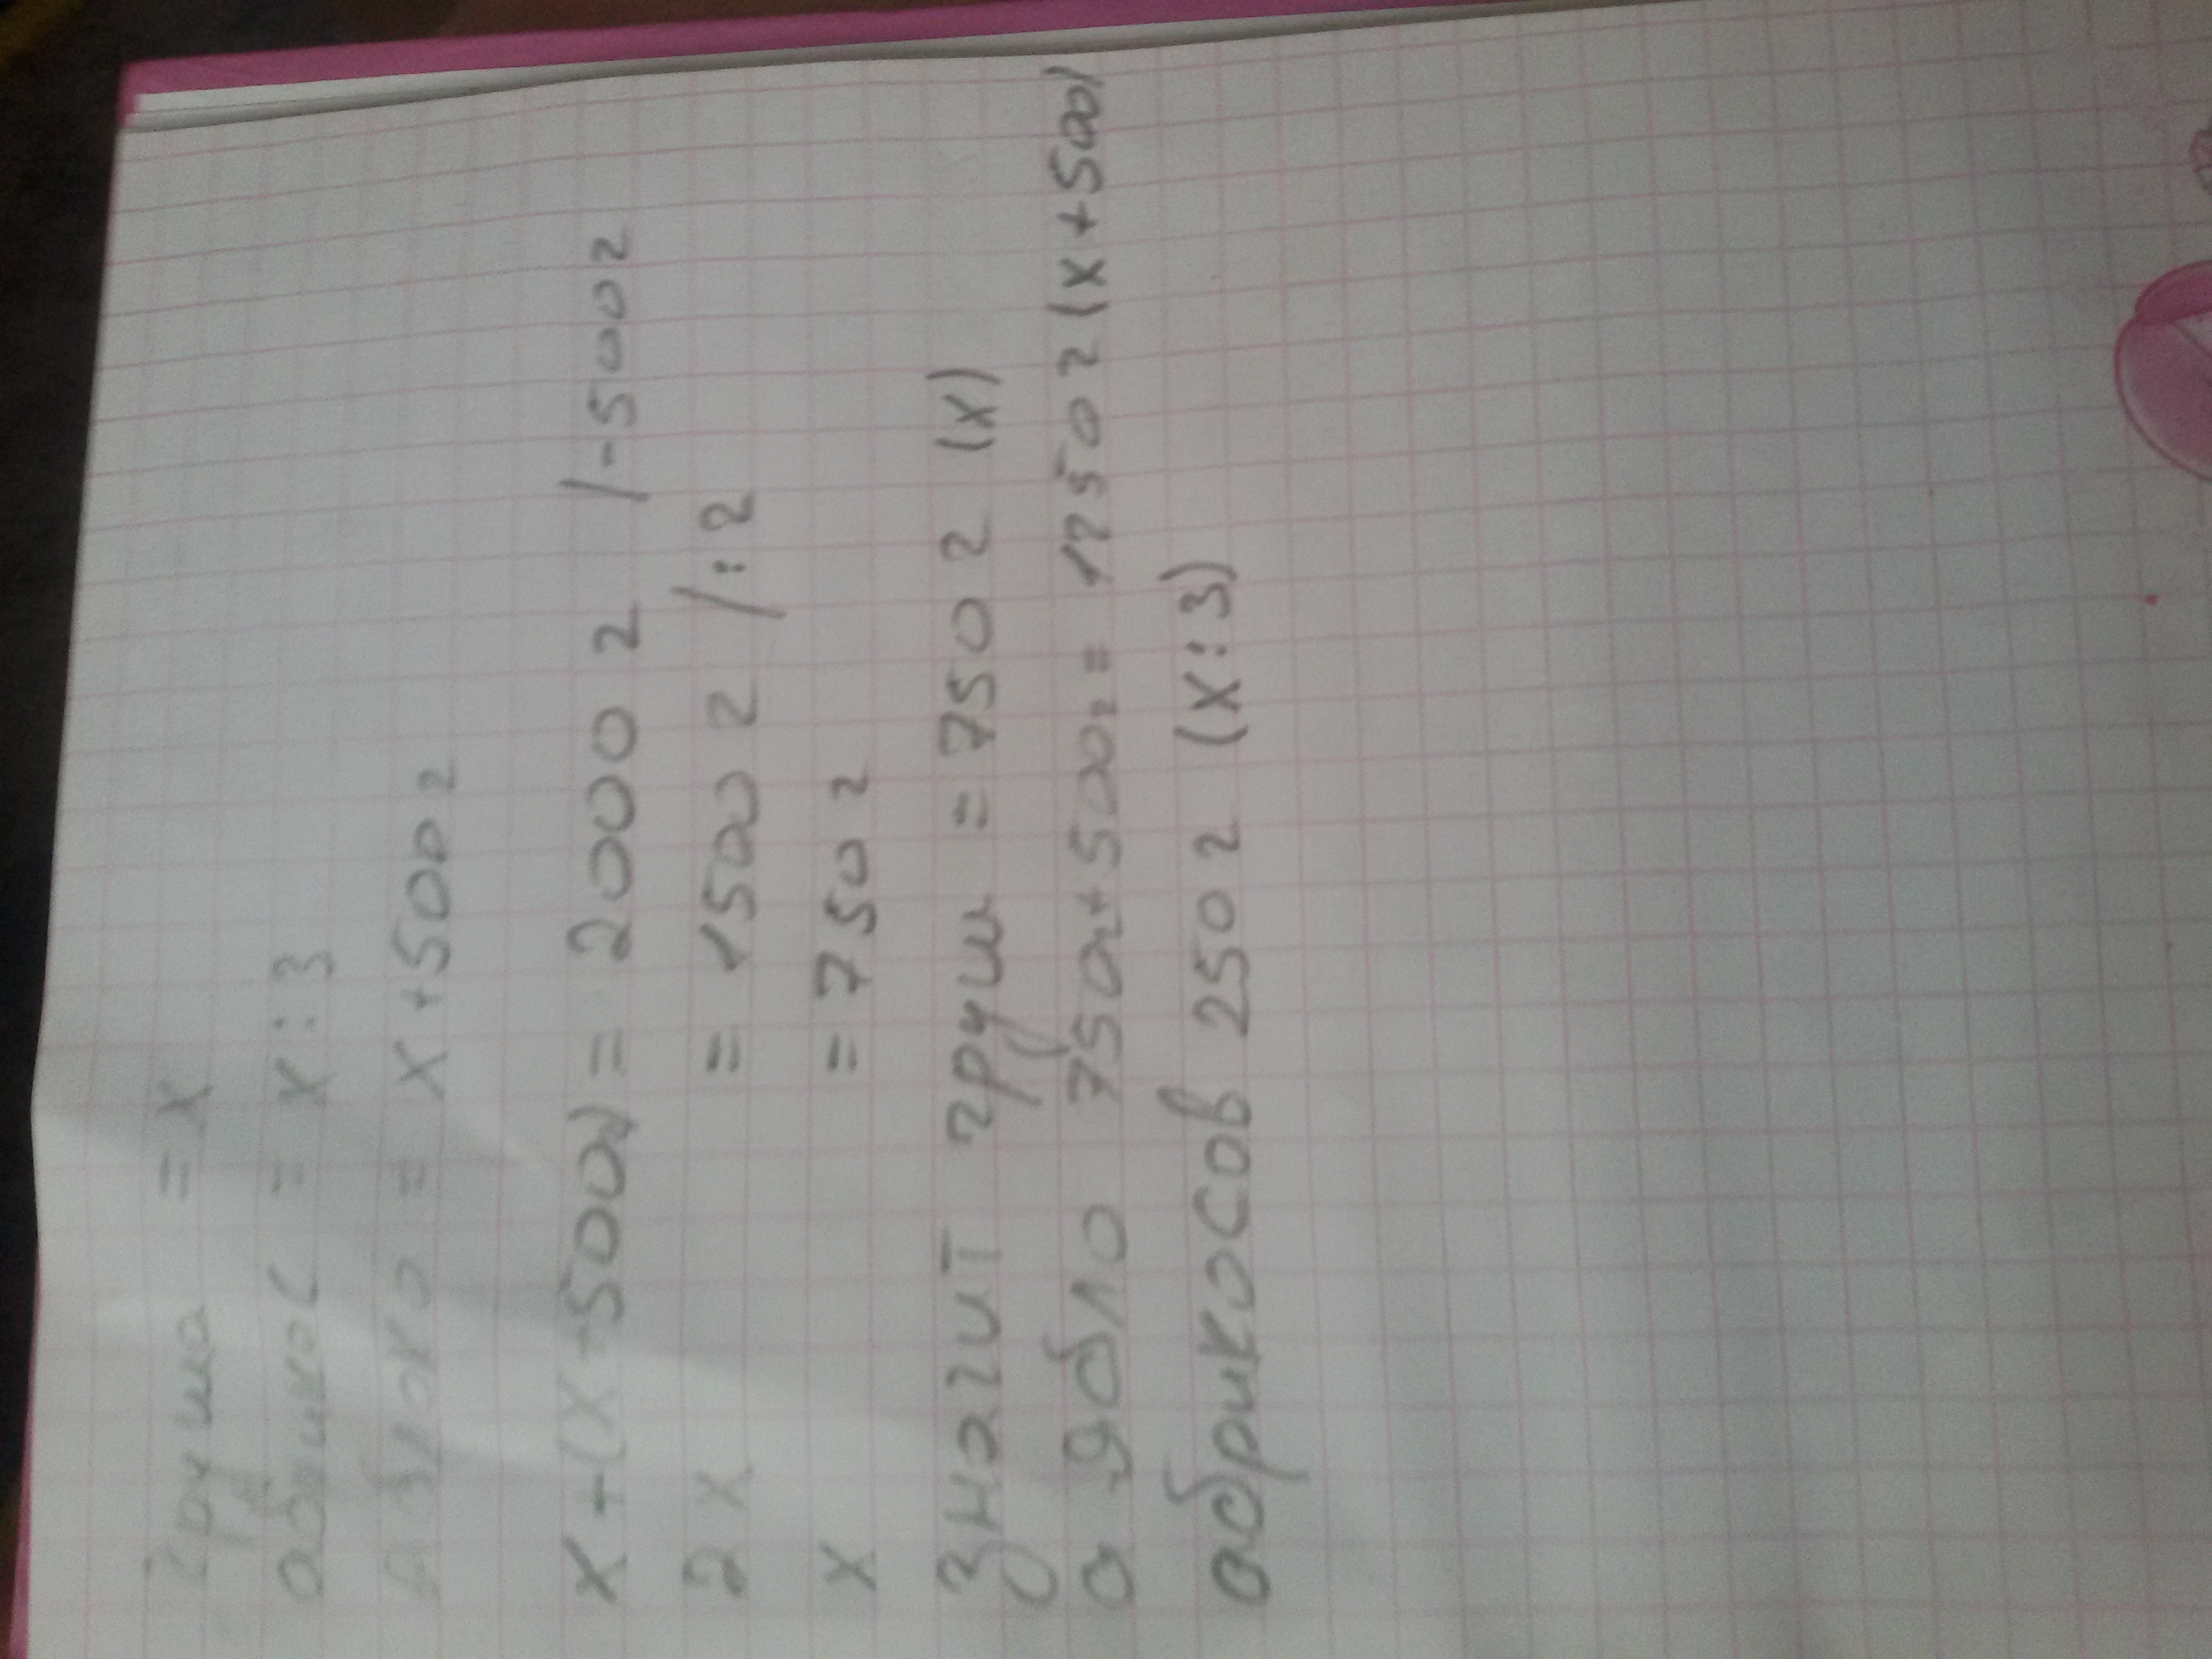 груша = x
абрикос = x : 3
яблоко = x + 500 г
x + (x + 500г) = 2000 г /-500 г
2x = 1500 г /: 2
x = 750 г
Значит груш = 750 г (x)
а ябло 750г + 500г = 1250 г (x + 500)
абрикосов 250 г (x : 3)